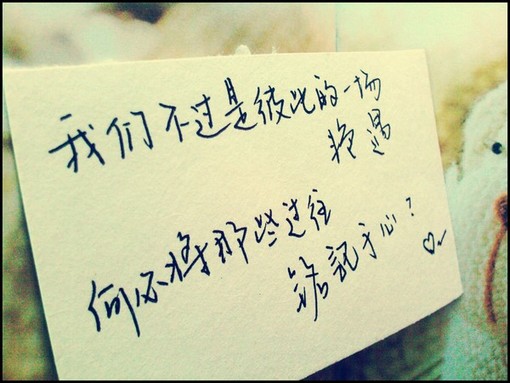 我们不过是彼此的一场
艳遇
何必将那些过往
銘記于心?